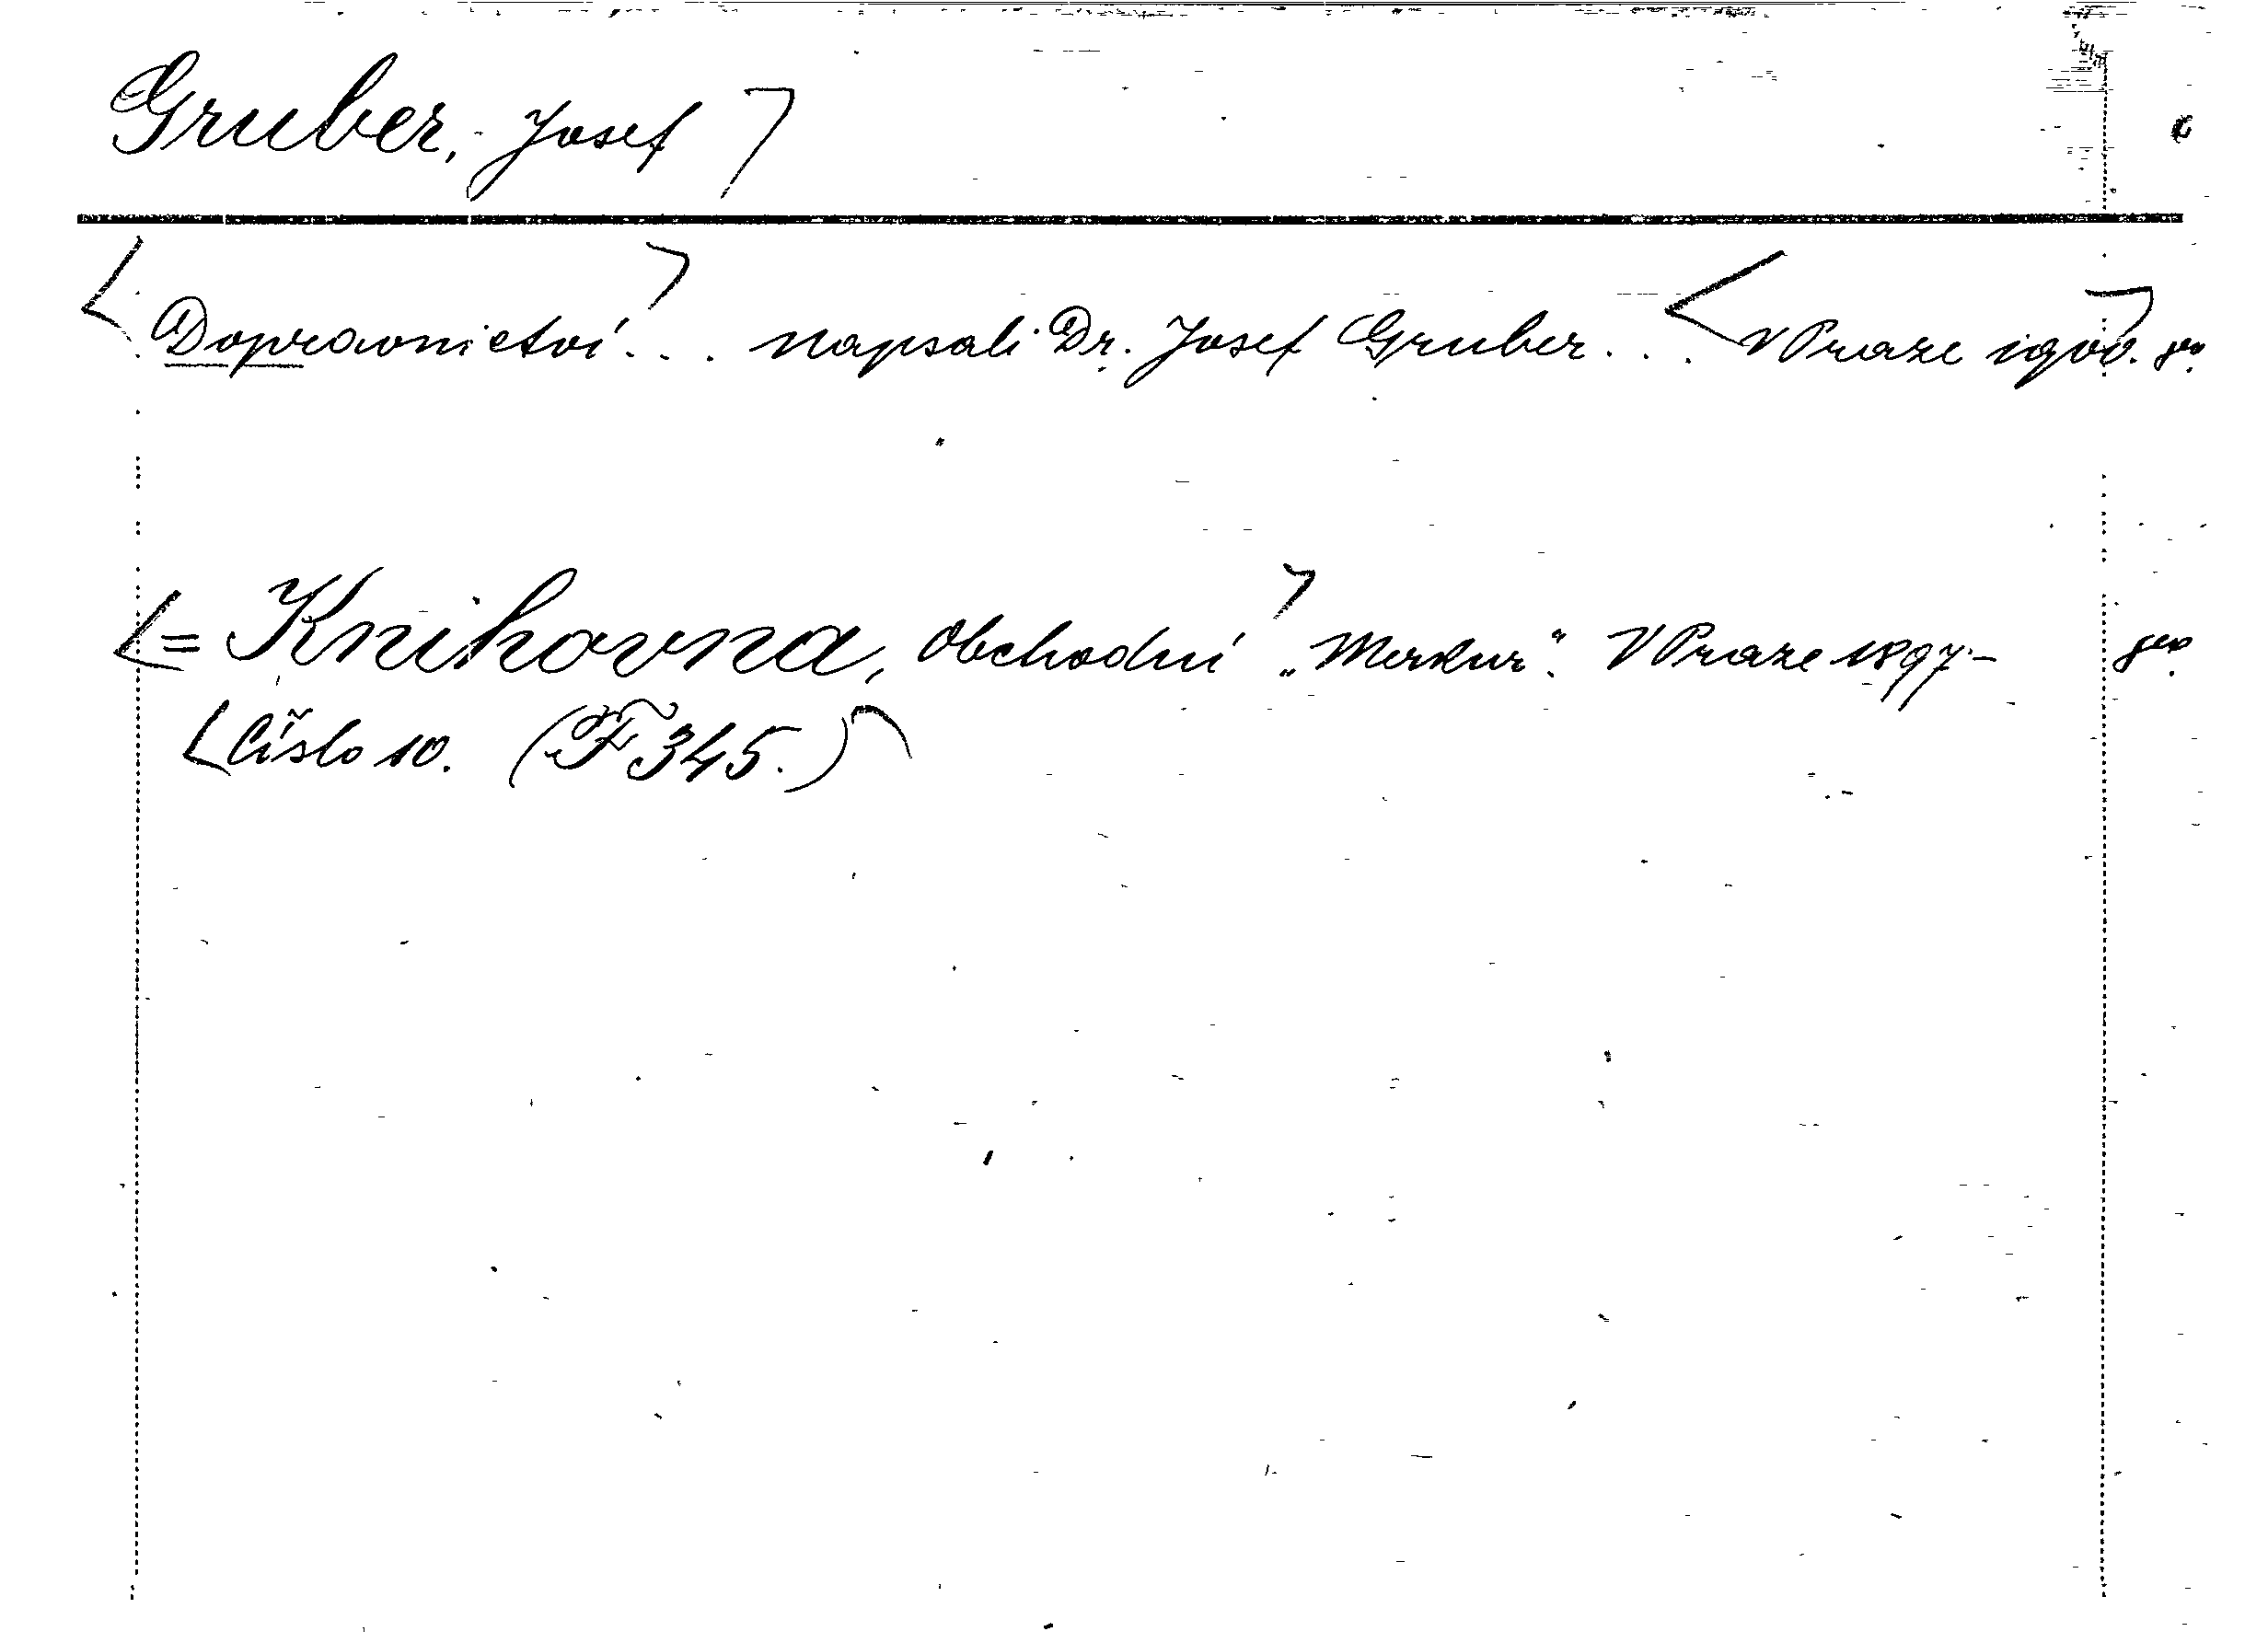 Gruber, Josef
Dopravnictví... napsali Dr. Josef Gruber... V Praze 1900. 8o.
= Knihovna, obchodní „Merkur“. V Praze 1897- 8o.
Číslo 10. (F 345.)